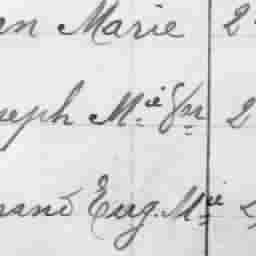 an Marie 2
seph M.ie Jn 2
rand Eug. M.ie 2